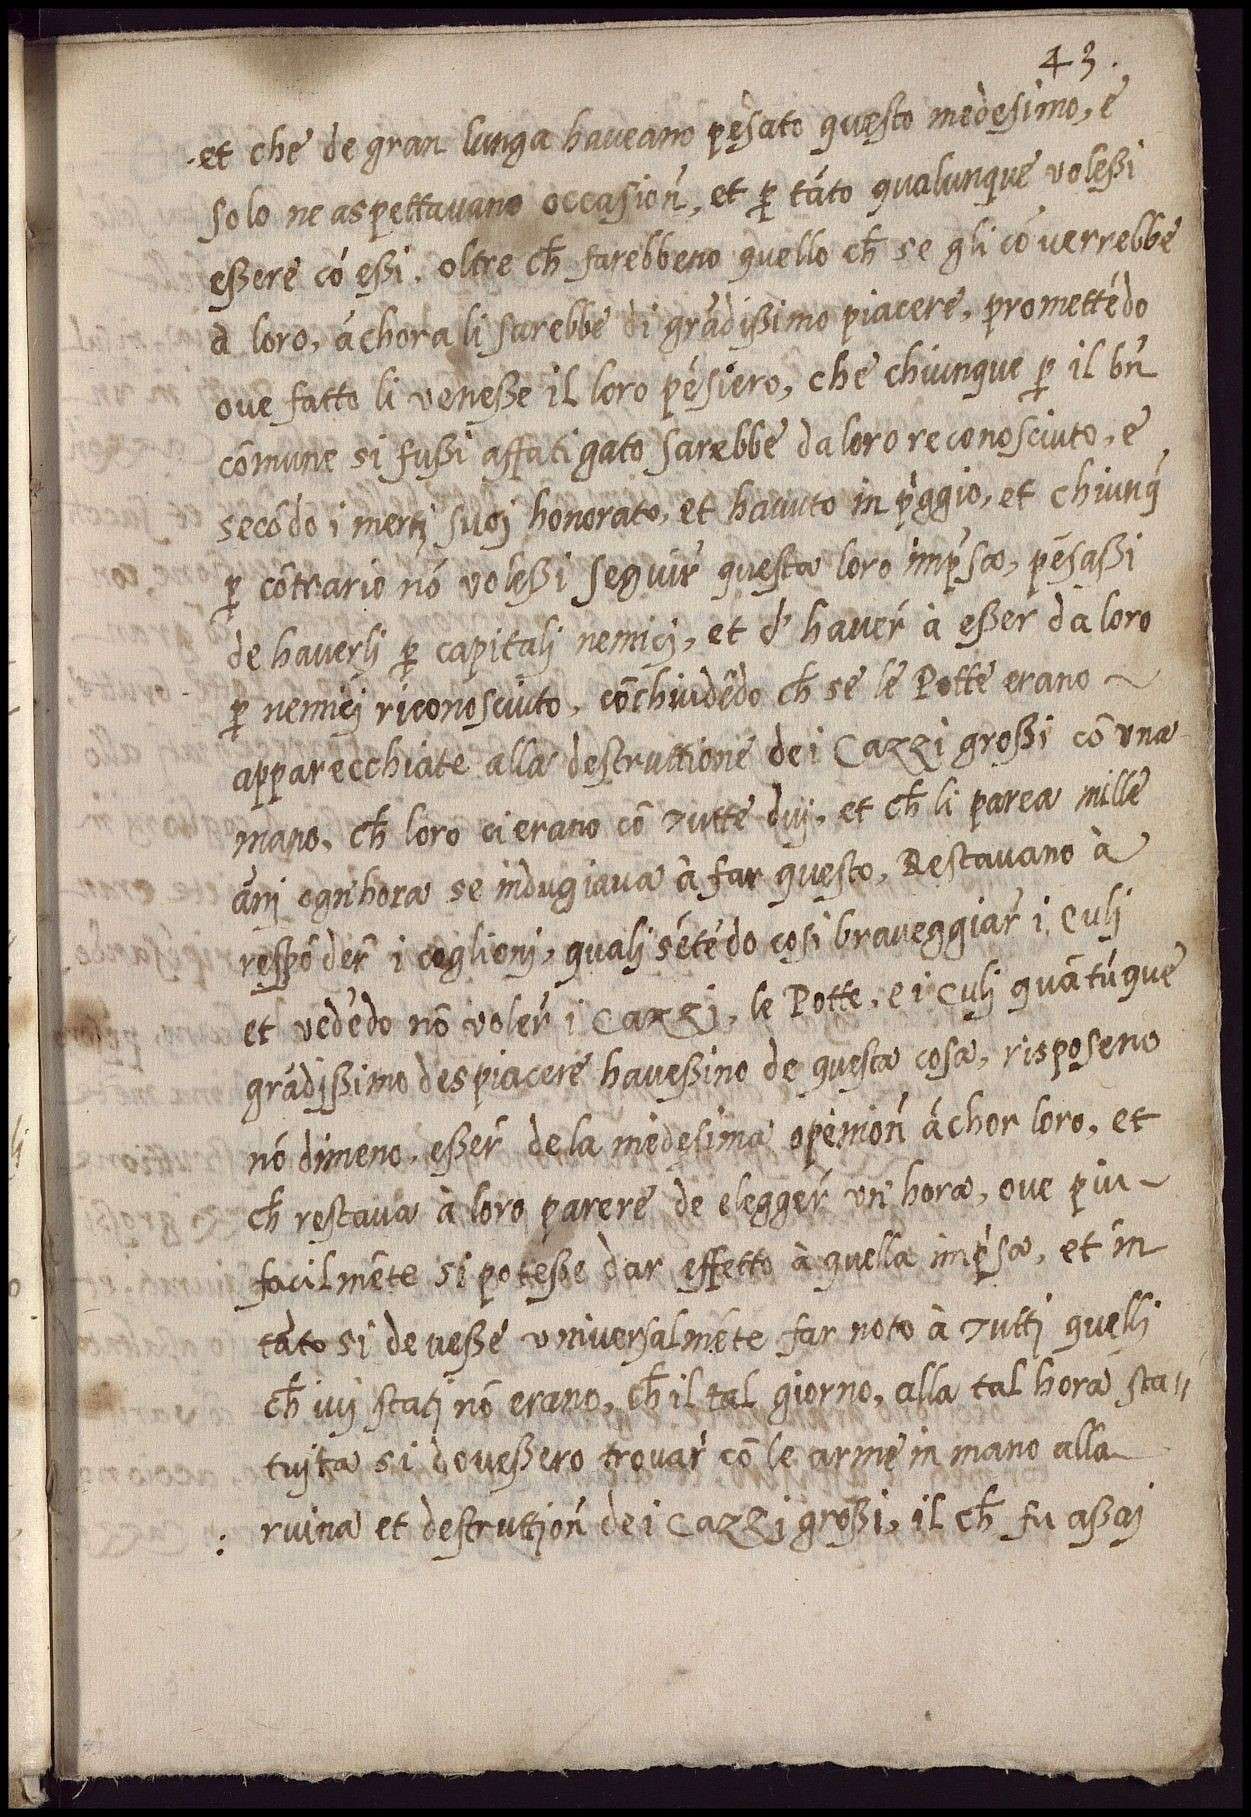 43.
et che de gran lunga haveano pēsato questo medesimo, e
solo ne aspettavano occasioń, et ꝑ tāto qualunque voleßi
eßere có eßi. oltre ch̄ farebbeno quello ch̄ se gli cō verrebbe
à loro, āchora li sarebbe di grādißimo piacere, promettēdo
oue fatto li veneße il loro pēsiero, che chiunque ꝑ il bn̄
cōmune si fußi affatigato sarebbe da loro reconosciuto, e
secōdo i meritj suoj honorato, et havuto in p̄ggio, et chiunq̄
ꝑ cōtrario nō voleßi seguir̄ questa loro imp̄sa, pēsaßi
de haverlj ꝑ capitalj nemicj, et d' haver̄ à eßer da loro
ꝑ nemicj riconosciuto, cōchiudēdo ch̄ se le Potte erano ~
apparecchiate alla destruttione dei Cazzi großi cō vna
mano, ch̄ loro ci erano cō tutte duj, et ch̄ li parea mille
ānj ogn'hora se indugiava à far questo, Restavano à
respōder̄ i coglionj, qualj sētēdo cosi braveggiar̄ i Culj
et vedēdo nō voler̄ i Cazzj, le Potte, e i Culj quātūque
grādißimo despiacere haveßino de questa cosa, risposeno
nō dimeno, eßer̄ de la medesima openioń āchor loro, et
ch̄ restava à loro parere de elegger̄ vn'hora, oue piu ~
facilmēte si poteße dar effetto à quella imp̄sa, et in
tāto si deveße vniversalmēte far noto à tuttj quelli
ch̄ ivj statj nō erano, ch̄ il tal giorno, alla tal hora sta〃
tujta si doveßero trovar̄ cō le arme in mano alla
: ruina et destruttjoń dei Cazzj großi, il ch̄ fu aßaj